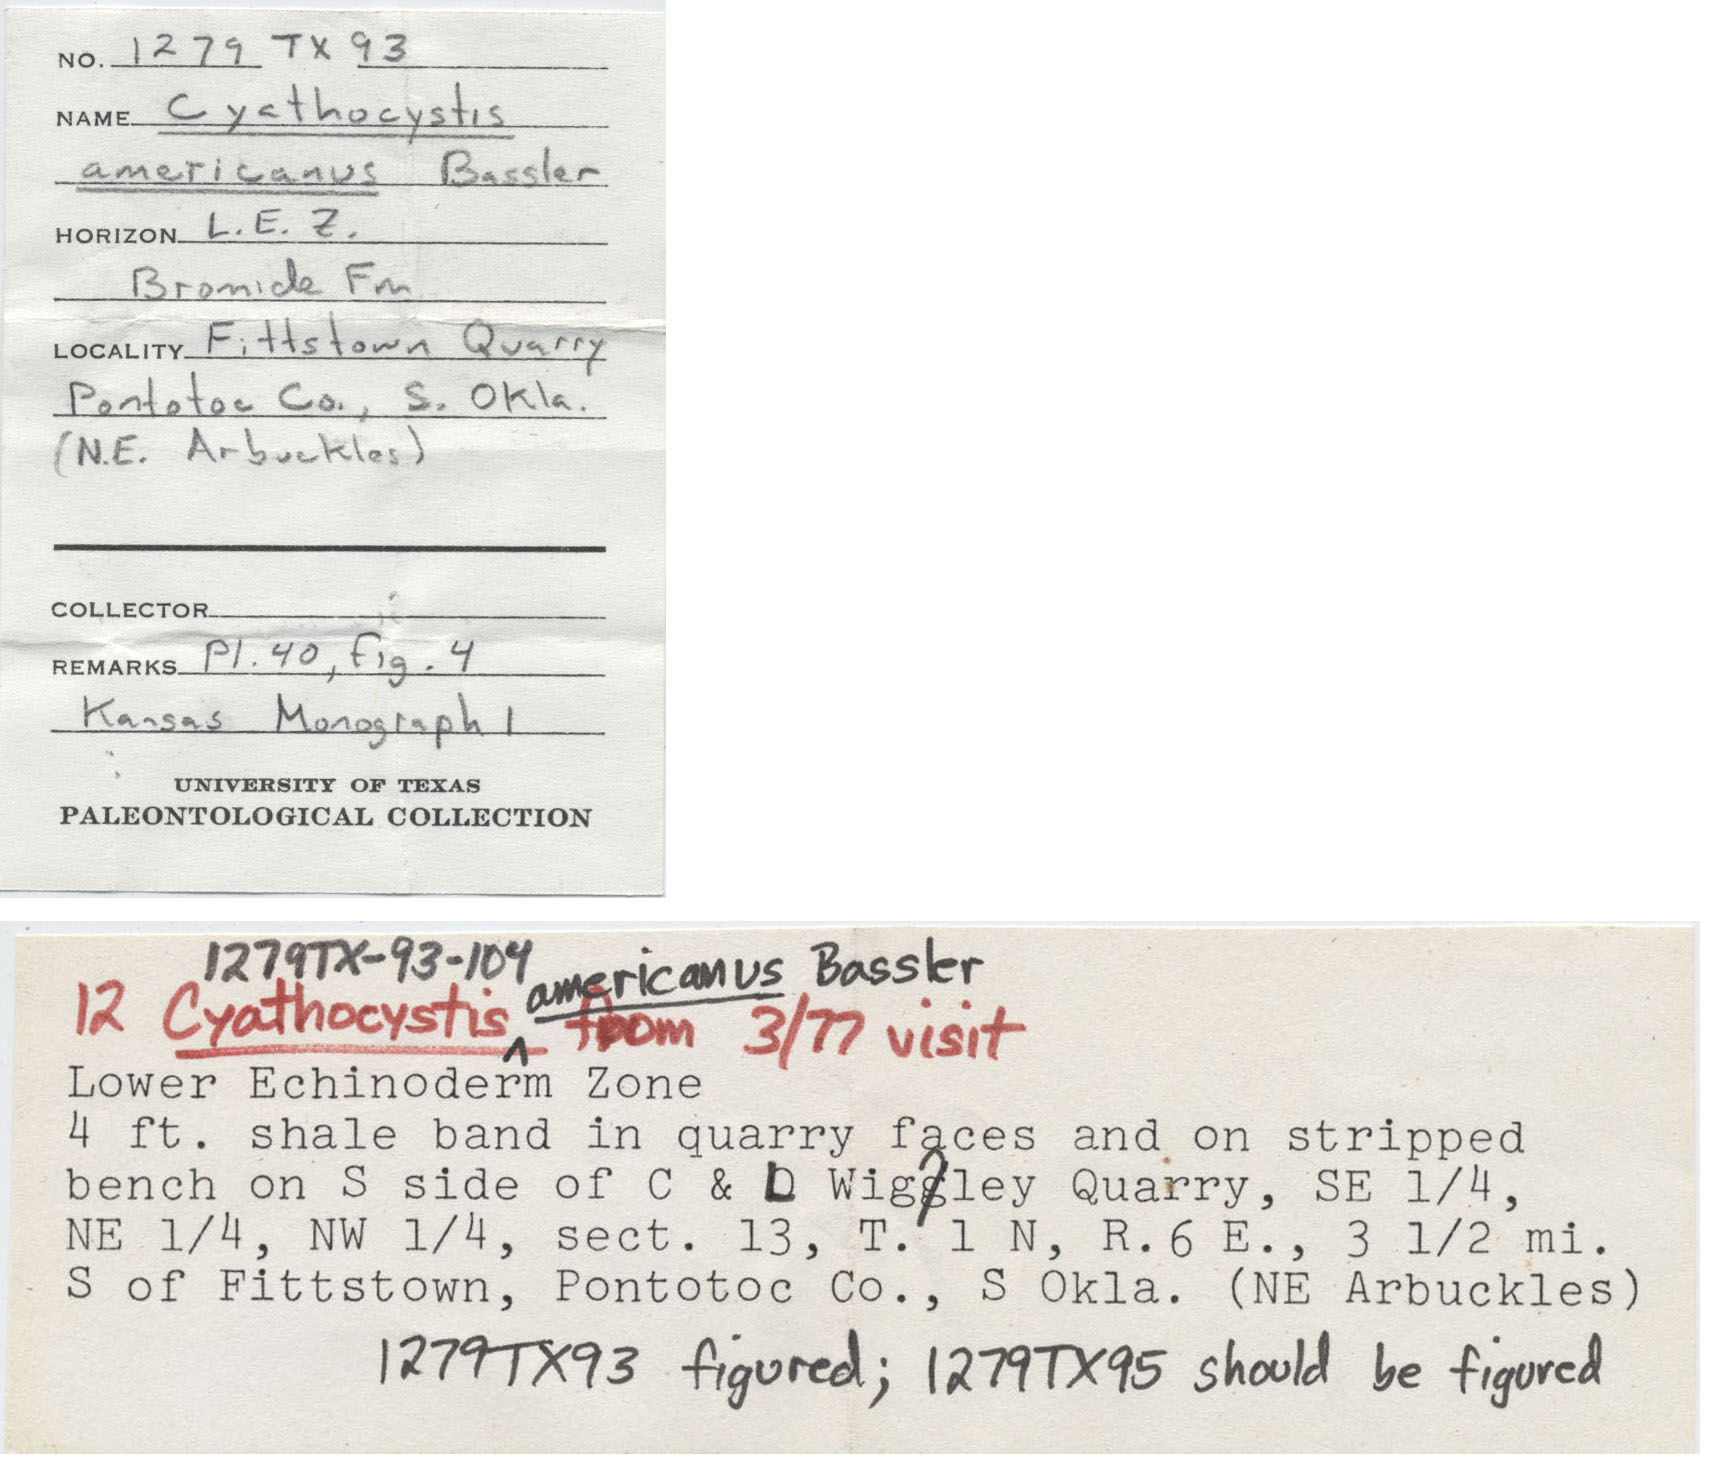 NO. 1279 TX 93
NAME Cyathocystis
americanus Bassler
HORIZON L.E.Z.
Bromide Fm
LOCALITY Fittstown Quarry
Pontotoc Co., S. Okla.
(N.E. Arbuckles)
COLLECTOR
REMARKS Pl. 40, Fig. 4
Kansas Monograph 1
UNIVERSITY OF TEXAS
PALEONTOLOGICAL COLLECTION
1279TX-93-104
12 Cyathocystis ^ americanus Bassler from 3/77 visit
Lower Echinoderm Zone
4 ft. shale band in quarry faces and on stripped
bench on S side of C & L Wiggley Quarry, SE 1/4,
NE 1/4, NW 1/4, sect. 13, T. 1 N, R.6 E., 3 1/2 mi.
S of Fittstown, Pontotoc Co., S Okla. (NE Arbuckles)
1279TX93 figured; 1279TX95 should be figured